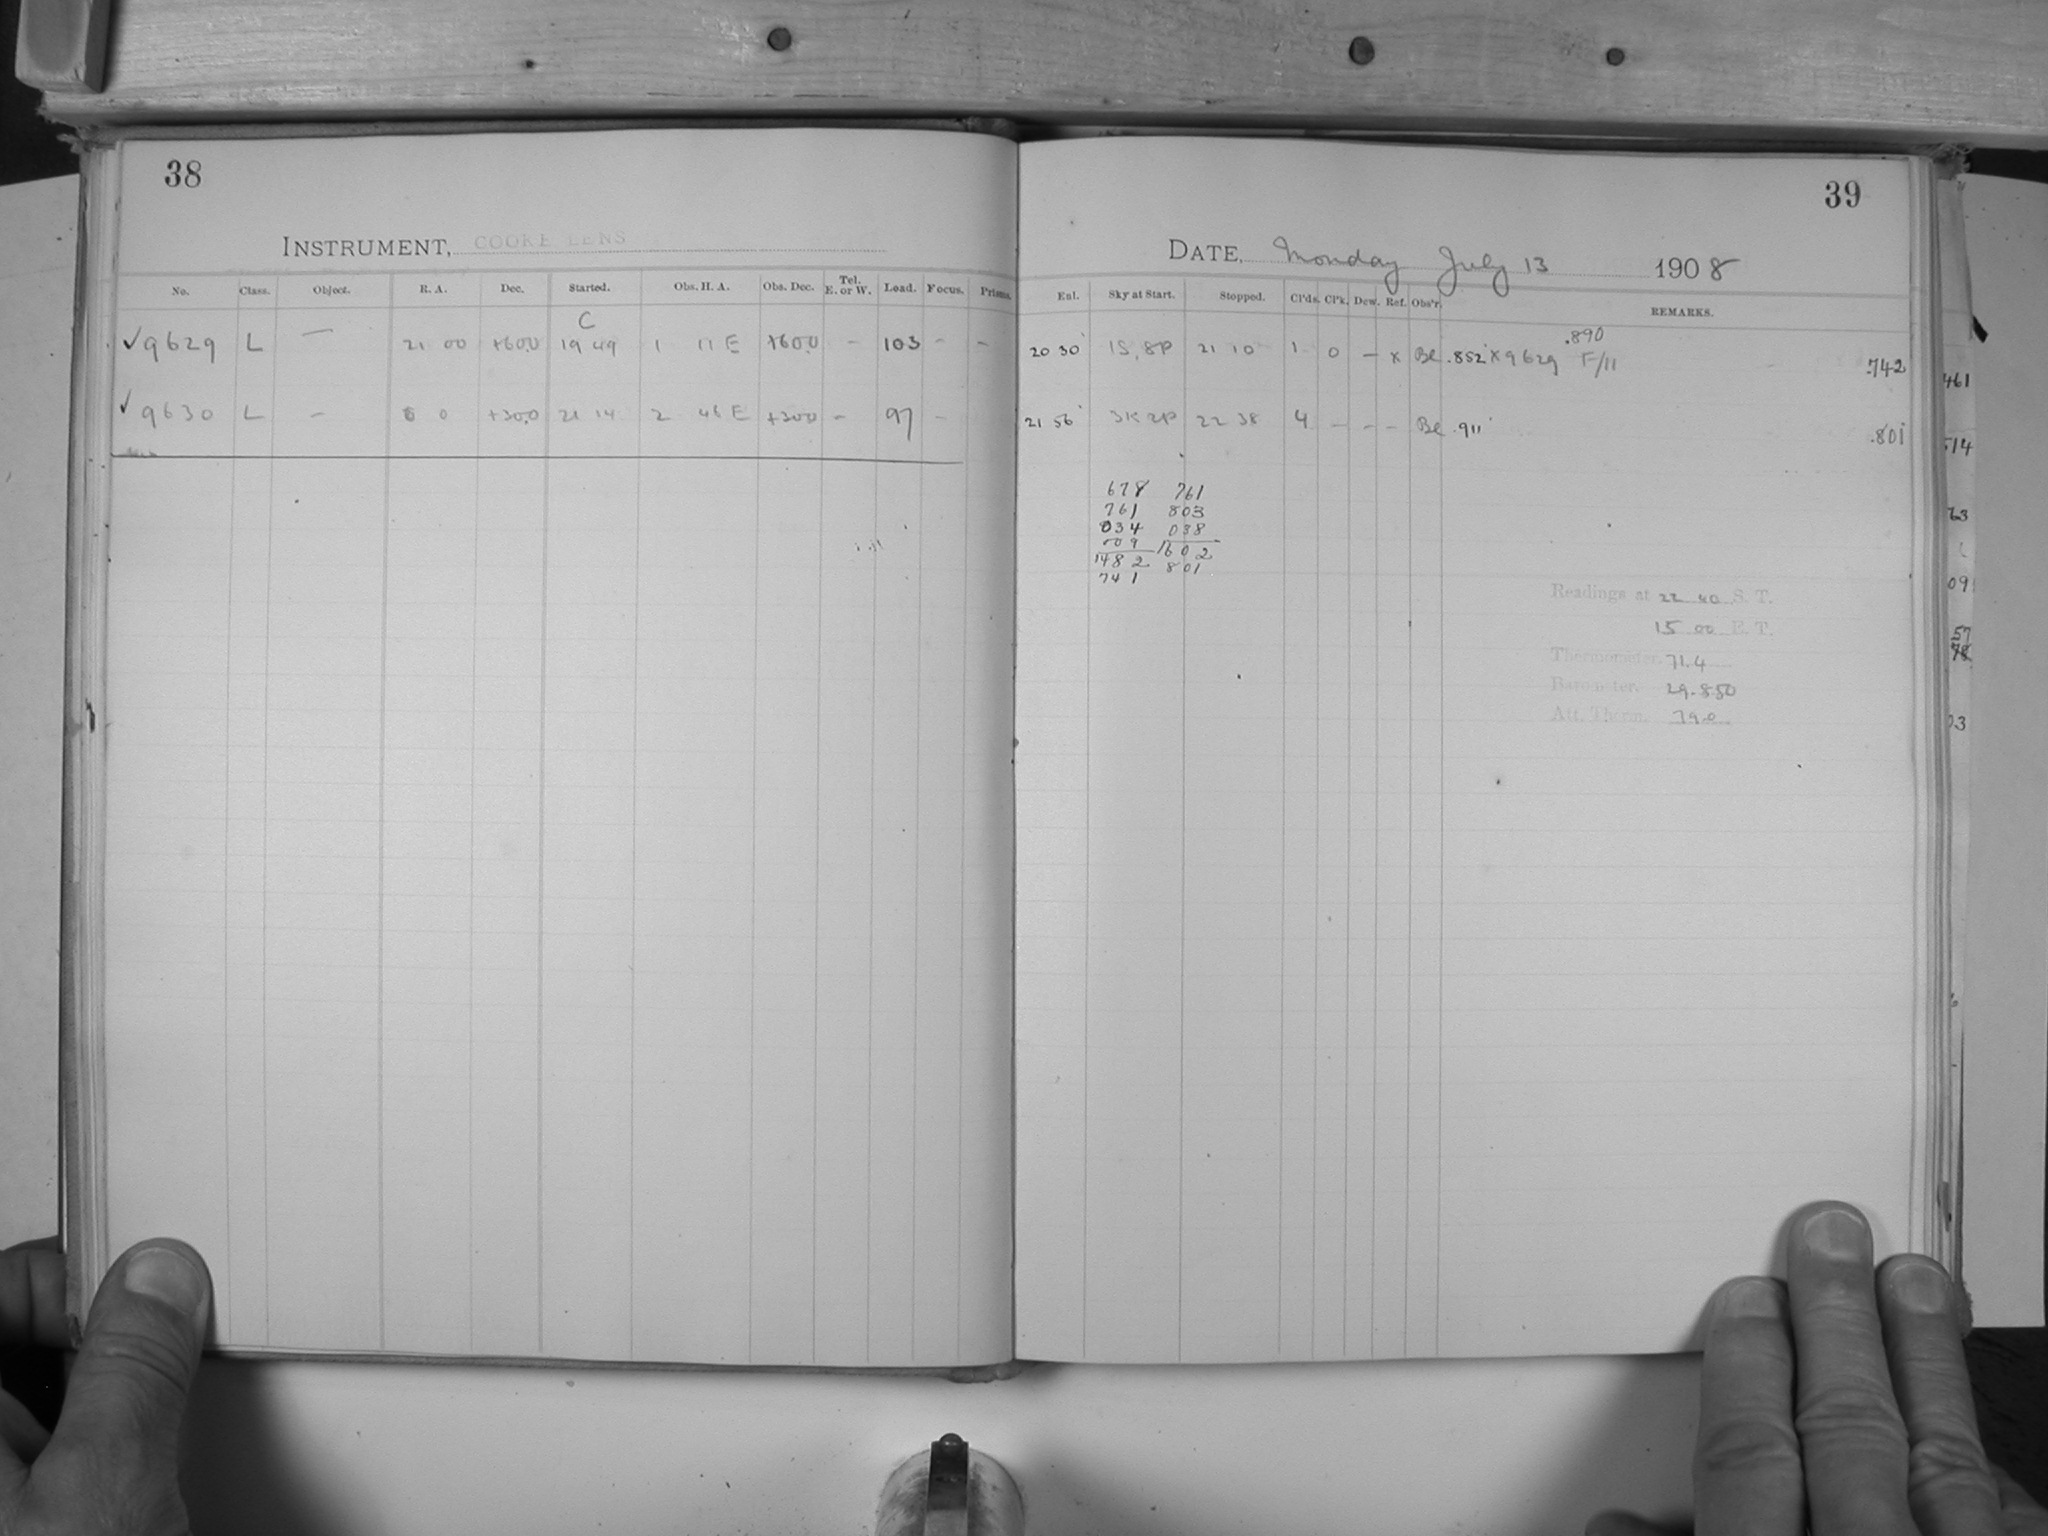 38
INSTRUMENT, COOKE LENS
No. Class. Object. R. A. Dec. Started. Obs. H. A. Obs. Dec. Tel. E. or W. Load. Focus. Prisms.
C
✓9629 L — 21 00 +60.0 19 49 1 11 E +60.0 – 103 – –
✓9630 L – 0 0 +30.0 21 14 2 46 E +30.0 – 97 –
39
DATE, Monday July 13 1908
Enl. Sky at Start. Stopped. Cl'ds. Cl'k. Dew. Ref. Obs'r. REMARKS.
.890
20 30 1S, 8P 21 10 1 0 — x Be .852 x 9629 F/11 .742
21 56 3K 2P 22 38 4 – – – Be .911 .801
678 761
761 803
034 038
009 1602
1482 801
741
Readings at 22 40 S. T.
15 00 E. T.
Thermometer. 71.4
Barometer. 29.850
Att. Therm. 79.0
461
514
63
09
57
78
03